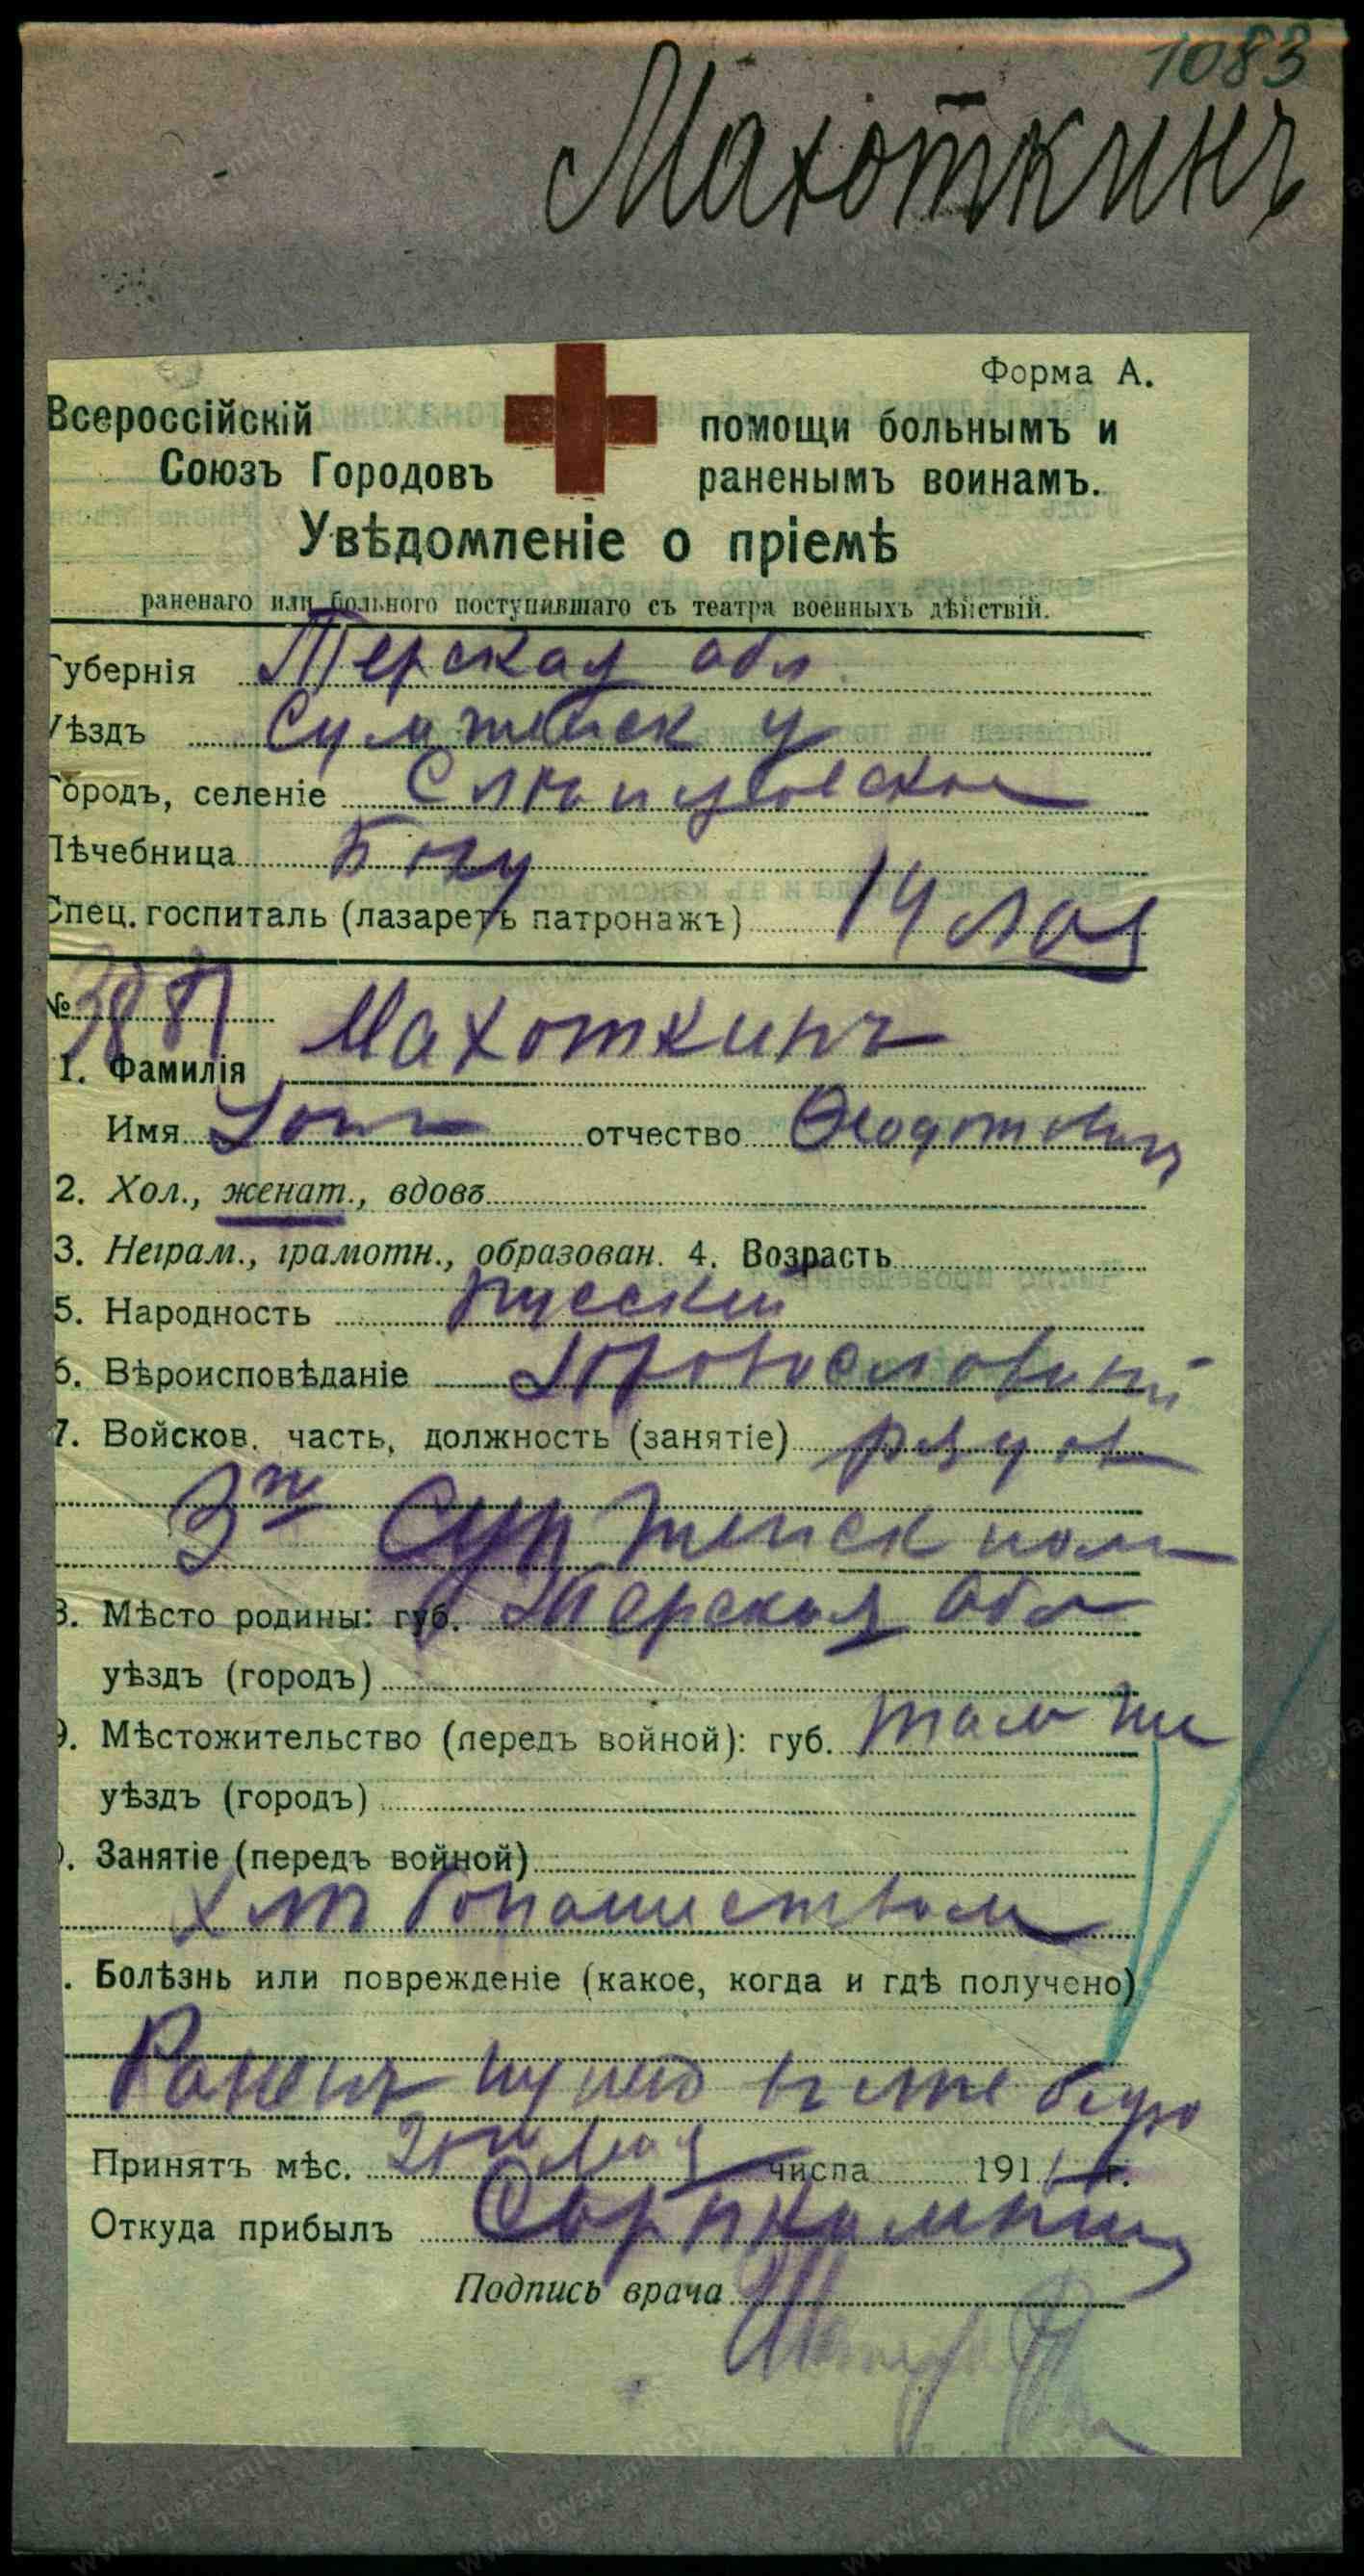 1083
Махоткинъ
Форма А.
Всероссійскій помощи больнымъ и
Союзъ Городовъ раненымъ воинамъ.
Увѣдомленіе о пріемѣ
раненаго или больного поступившаго съ театра военныхъ дѣйствій.
Губернія Терская обл
Уѣздъ Сумженск у
Городъ, селеніе Слѣпцовское
Лѣчебница Баку
Спец. госпиталь (лазаретъ патронажъ) 14 лаз
№ 3881
1. Фамилія Махоткинъ
Имя отчество Ѳеодотович
2. Хол., женат., вдовъ
3. Неграм., грамотн., образован. 4. Возрастъ
5. Народность Русский
6. Вѣроисповѣданіе Православный
7. Войсков. часть, должность (занятіе) рядов
3й Сунженск полк
8. Мѣсто родины: губ. Терская Обл
уѣздъ (городъ)
9. Мѣстожительство (передъ войной): губ. там же
уѣздъ (городъ)
. Занятіе (передъ войной)
Хлѣбопашеством
. Болѣзнь или поврежденіе (какое, когда и гдѣ получено)
Раненъ пулей в лѣвое бедро
Принятъ мѣс. Мая числа 191 г.
Откуда прибылъ Сарыкамыш
Подпись врача